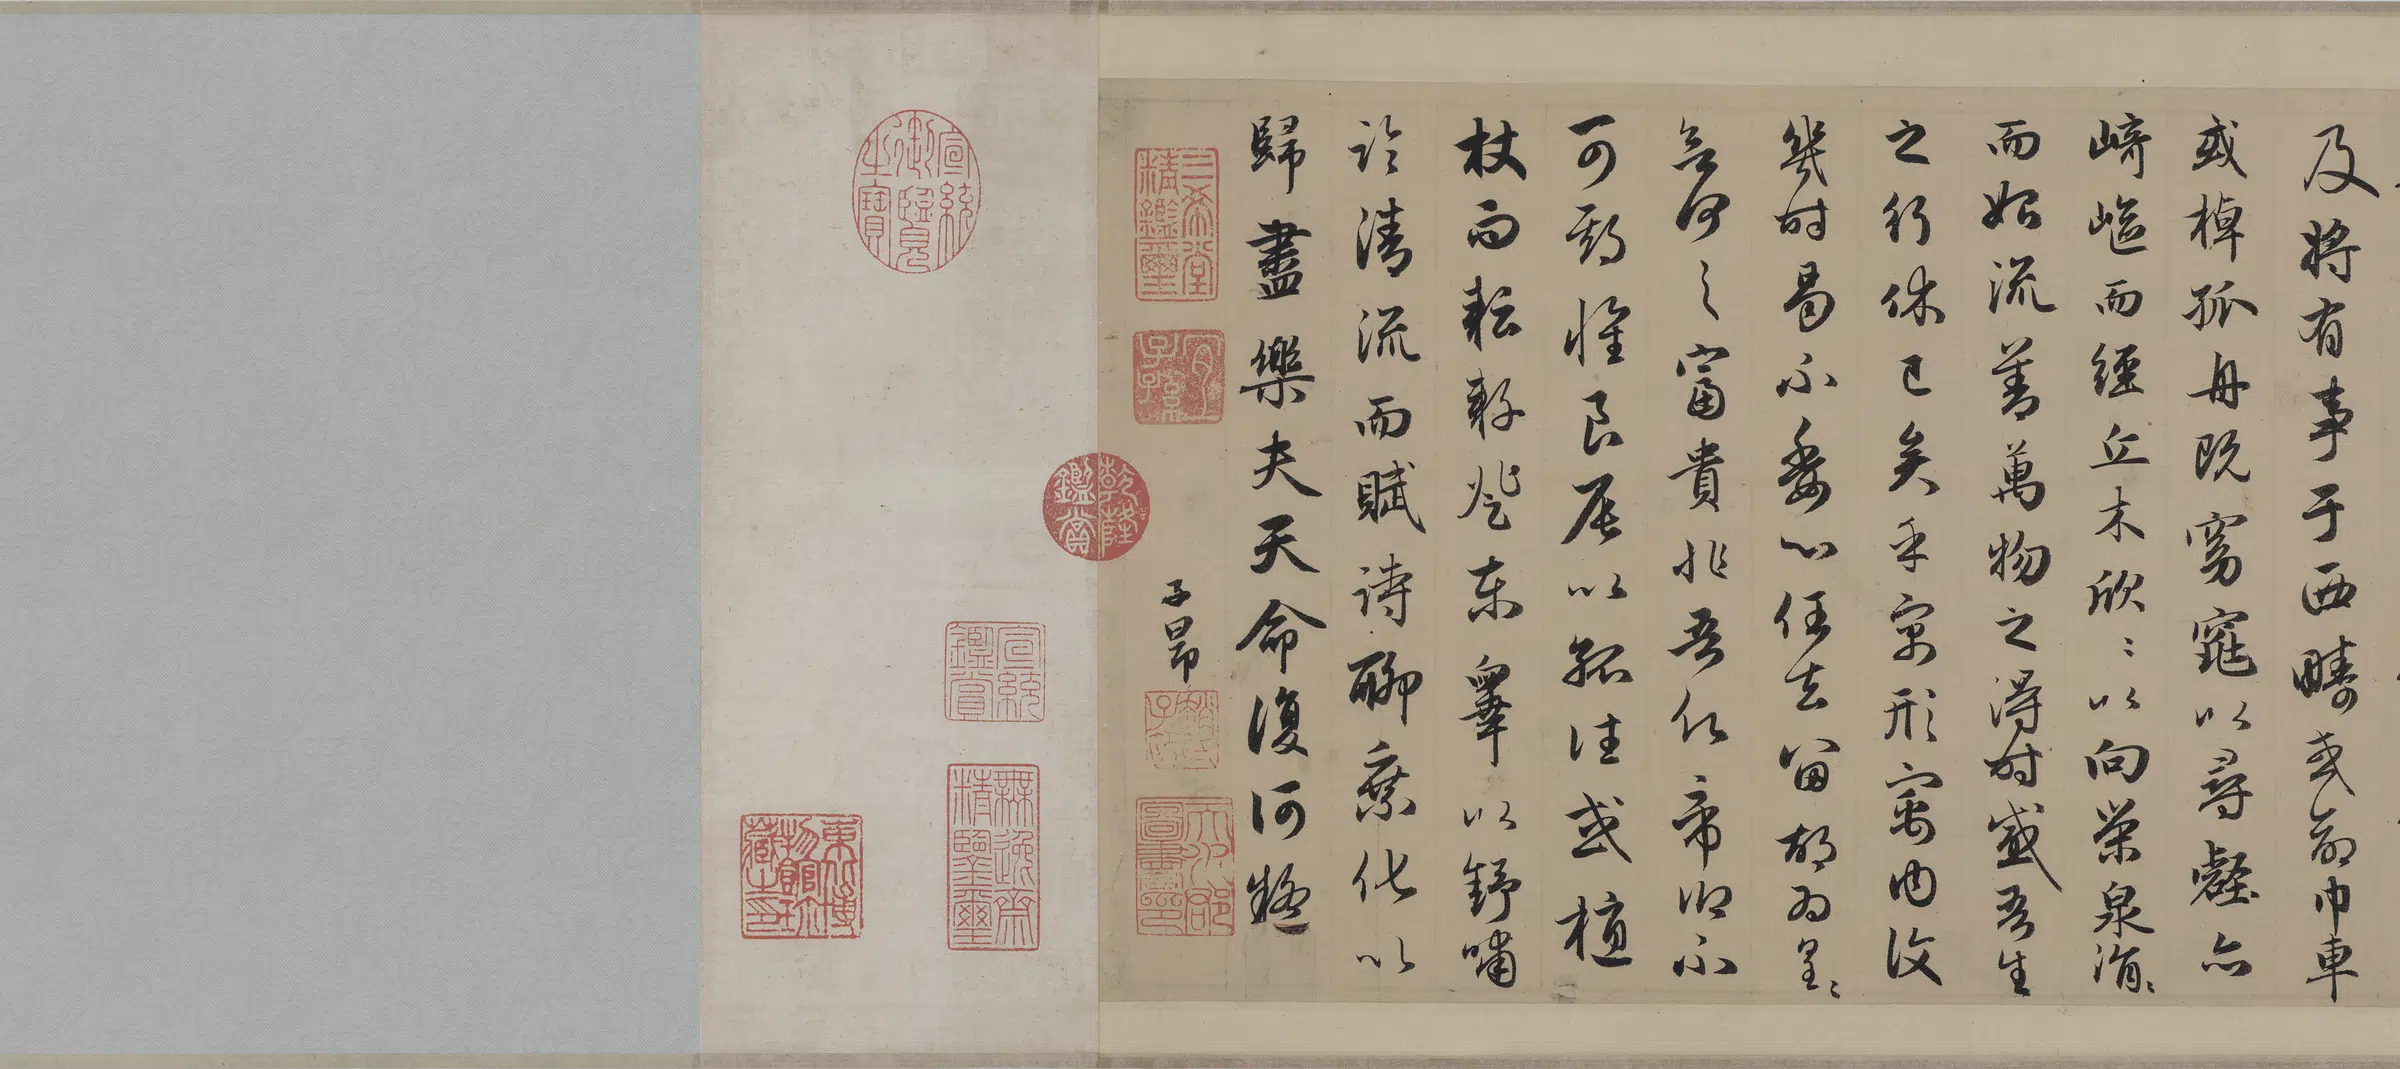 及將有事于西疇或命巾車
或棹孤舟既窈窕以尋壑亦
崎嶇而經丘木欣〻以向榮泉涓〻
而始流善萬物之得時感吾生
之行休已矣乎寓形寓內復
幾時曷不委心任去留胡為皇〻
欲何之富貴非吾願帝鄉不
可期懷良辰以孤往或植
杖而耘耔登東皋以舒嘯
臨清流而賦詩聊乘化以
歸盡樂夫天命復何疑
子昂
三希堂精鑑璽
宜子孫
趙氏子昂
天水郡圖書印
乾隆鑑賞
宣統御覽之寶
宣統鑑賞
無逸齋精鑑璽
東北博物館珍藏之印